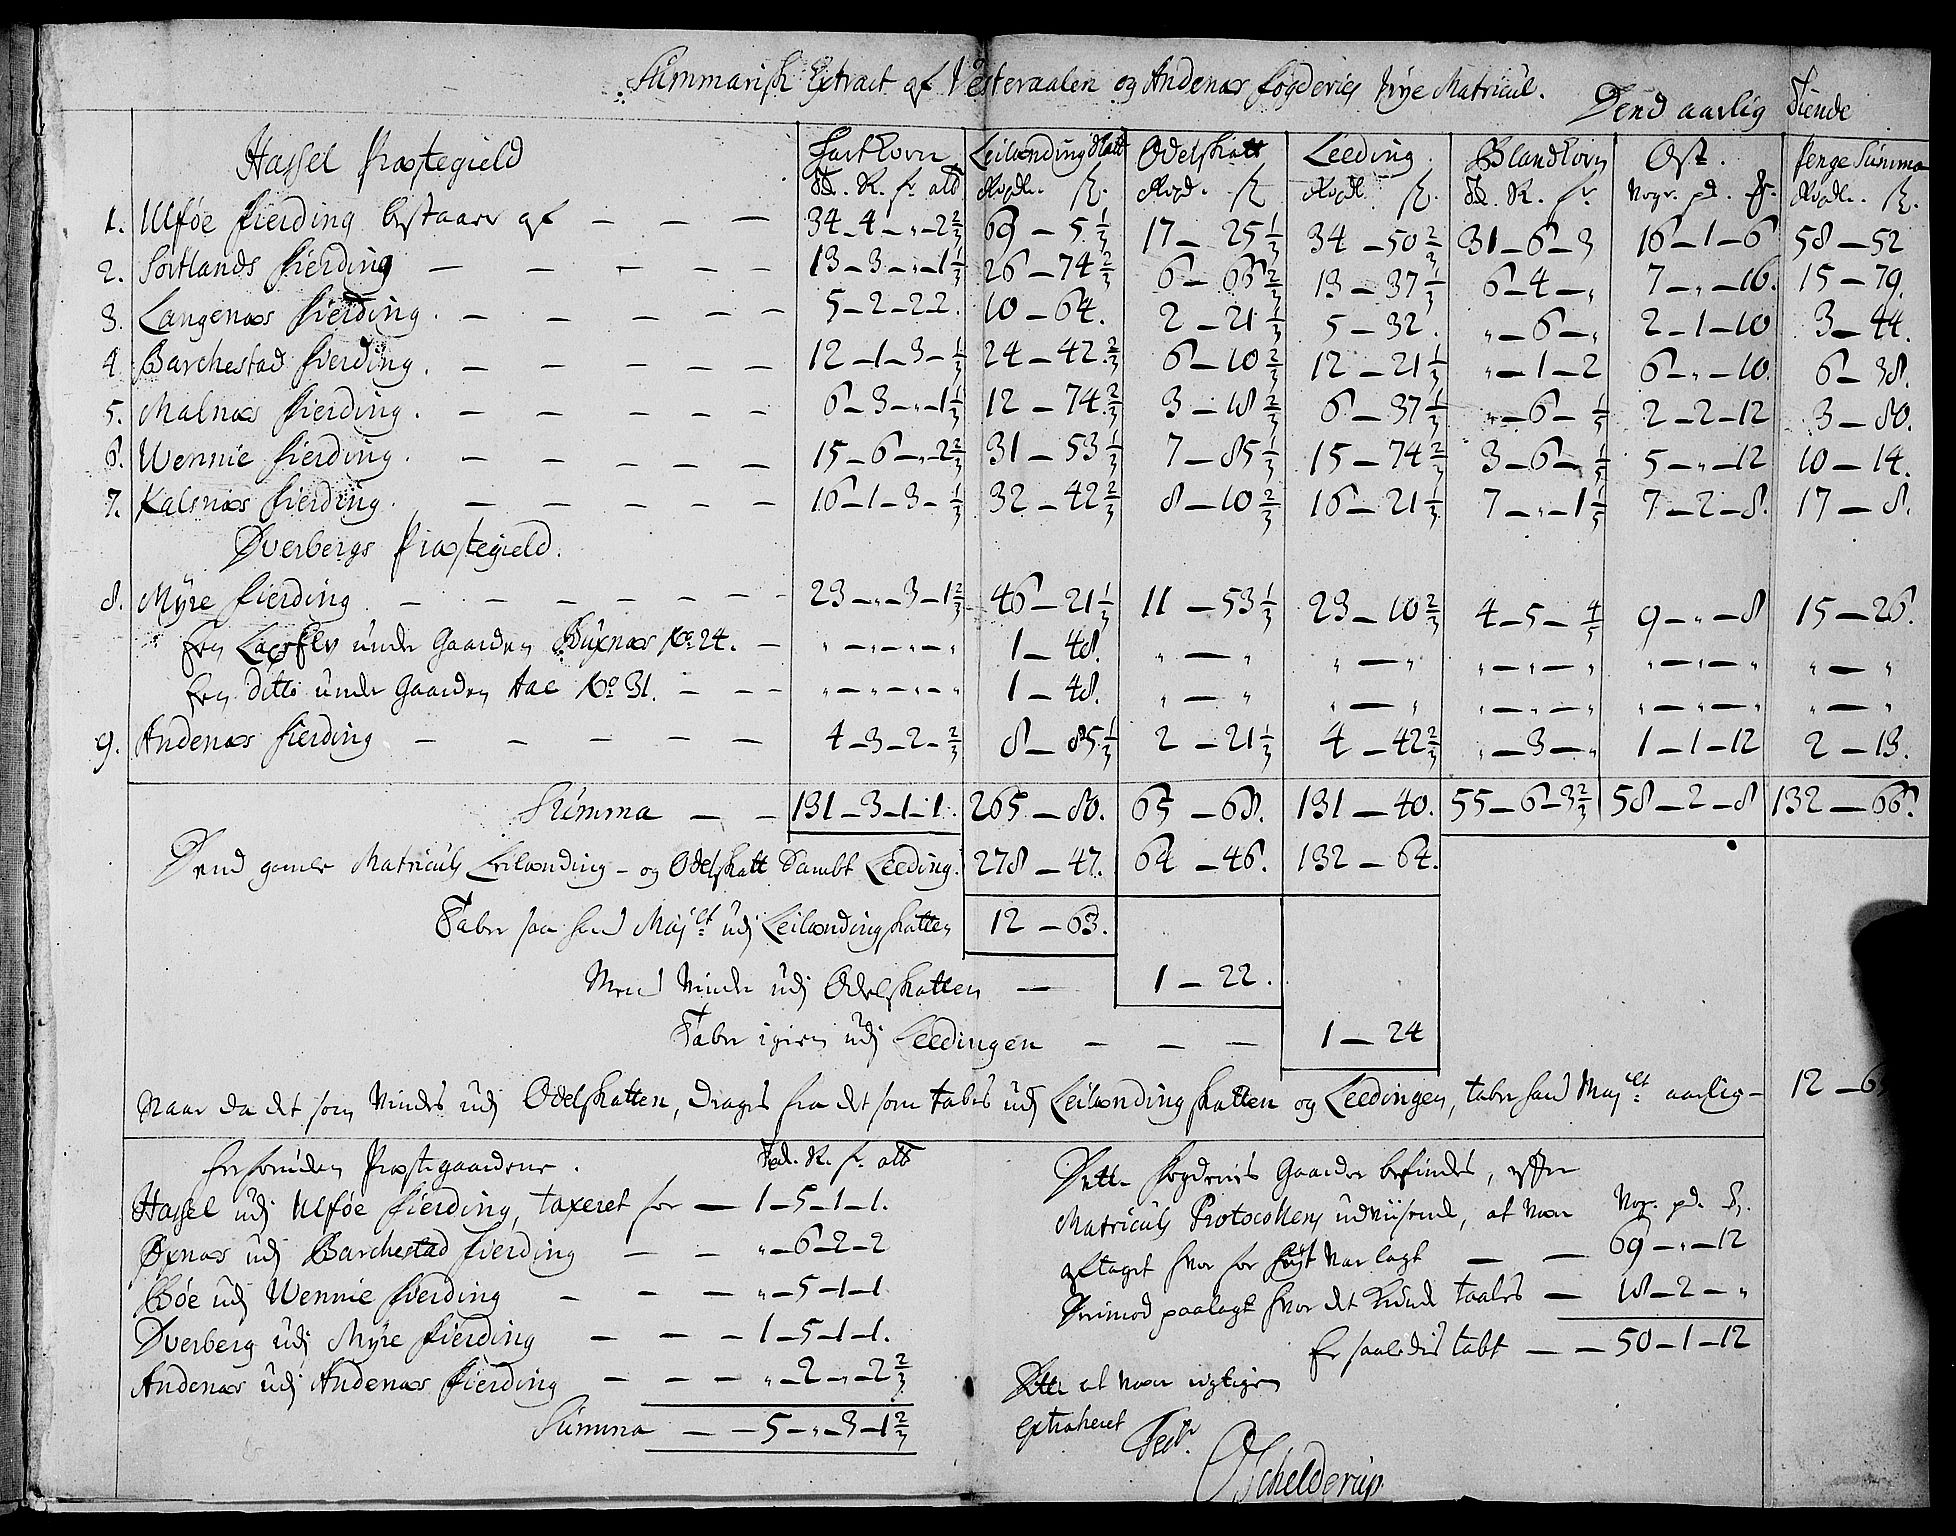 Summarisk Extract af Vesteraalen og Andenæs fogderies Nye Matricul.
Dend aarlig Tiende
Hassel Præstegield | | Leilændingskatt | Odelskatt | Leeding. | Blandkorn | Ost. | Penge Summa
1. Ulføe fierding bestaaer af — — — 34 – 4 – „ – 2 2/3 | 69 – 5 1/3 | 17 – 25 1/3 | 34 – 50 2/3 | 31 – 6 – 3 | 16 – 1 – 6 | 58 – 52
2. Sortlands fierding — — — — — 13 – 3 – „ – 1 1/3 | 26 – 74 2/3 | 6 – 66 2/3 | 13 – 37 1/3 | 6 – 4 – „ | 7 – „ – 16. | 15 – 79.
3. Langenæs fierding. — — — — — 5 – 2 – 2 2. | 10 – 64. | 2 – 21 1/3 | 5 – 32. | „ – 6 – „ | 2 – 1 – 10 | 3 – 44.
4. Barchestad fierding. — — — — — 12 – 1 – 3 – 1/3 | 24 – 42 2/3 | 6 – 10 2/3 | 12 – 21 1/3 | „ – 1 – 2 | 6 – „ – 10. | 6 – 38.
5. Malnæs fierding. — — — — — 6 – 3 – „ – 1 1/3 | 12 – 74 2/3 | 3 – 18 2/3 | 6 – 37 1/3 | „ – 6 – 1/5 | 2 – 2 – 12 | 3 – 80.
6. Wennie fierding. — — — — — 15 – 6 – „ – 2 2/3 | 31 – 53 1/3 | 7 – 85 1/3 | 15 – 74 2/3 | 3 – 6 – 1/5 | 5 – „ – 12 | 10 – 14.
7. Kalsnæs fierding. — — — — — 16 – 1 – 3 – 1/3 | 32 – 42 2/3 | 8 – 10 2/3 | 16 – 21 1/3 | 7 – „ – 1 1/5 | 7 – 2 – 8. | 17 – 8.
Dverbergs Præstegield.
8. Myre fierding. — — — — — — 23 – „ – 3 – 1 2/3 | 46 – 21 1/3 | 11 – 53 1/3 | 23 – 10 2/3 | 4 – 5 – 4/5 | 9 – „ – 8 | 15 – 26.
Een Laxeflv under Gaarden Buxnæs No 24. — „ – „ – „ – „ | 1 – 48. | „ – „ | „ – „ | „ – „ – „ | „ – „ – „ | „ – „
Een ditto under Gaarden Aae No 31. — — — „ – „ – „ – „ | 1 – 48. | „ – „ | „ – „ | „ – „ – „ | „ – „ – „ | „ – „
9. Andenæs fierding — — — — — 4 – 3 – 2 – 2/3 | 8 – 85 1/3 | 2 – 21 1/3 | 4 – 42 2/3 | „ – 3 – „ | 1 – 1 – 12 | 2 – 13.
Summa — — 131 – 3 – 1 – 1. | 265 – 80. | 65 – 68. | 131 – 40. | 55 – 6 – 3 2/3 | 58 – 2 – 8 | 132 – 66.
Dend gamle Matriculs Leilænding – og Odelskatt Sambt Leeding. 278 – 47. | 64 – 46. | 132 – 64.
Taber saa hans Majet udj Leilændingskatten 12 – 63.
Men Vinder udj Odelskatten — 1 – 22.
Taber igien udj Leedingen — — — 1 – 24
Naar da det som Vindes udj Odelskatten, drages fra det som tabes udj Leilændingskatten og Leedingen, taber hans Majet aarlig – 12 –
Forforuden Præstegaardene.
Hassel udj Ulføe fierding, taxeret for — 1 – 5 – 1 – 1.
Øxnæs udj Barchestad fierding — — „ – 6 – 2 – 2
Bøe udj Wennie fierding — — — „ – 5 – 1 – 1.
Dverberg udj Myre fierding — — — 1 – 5 – 1 – 1.
Andenæs udj Andenæs fierding — — — „ – 2 – „ – 2 2/3
Summa — — 5 – „ – 3 – 1 2/3
Dette fogderies Gaarder befindes, efter
Matriculs Protocollens udviisende, at være Vogr. pd. .
aftaget hvor for høyt var lagt — — 69 – „ – 12
Derimod paalagt hvor det kunde taales — 18 – 2 – „
Er saaledes tabt — — 50 – 1 – 12
Dette at være rigtigen
extraheret
Test.
OSchelderup